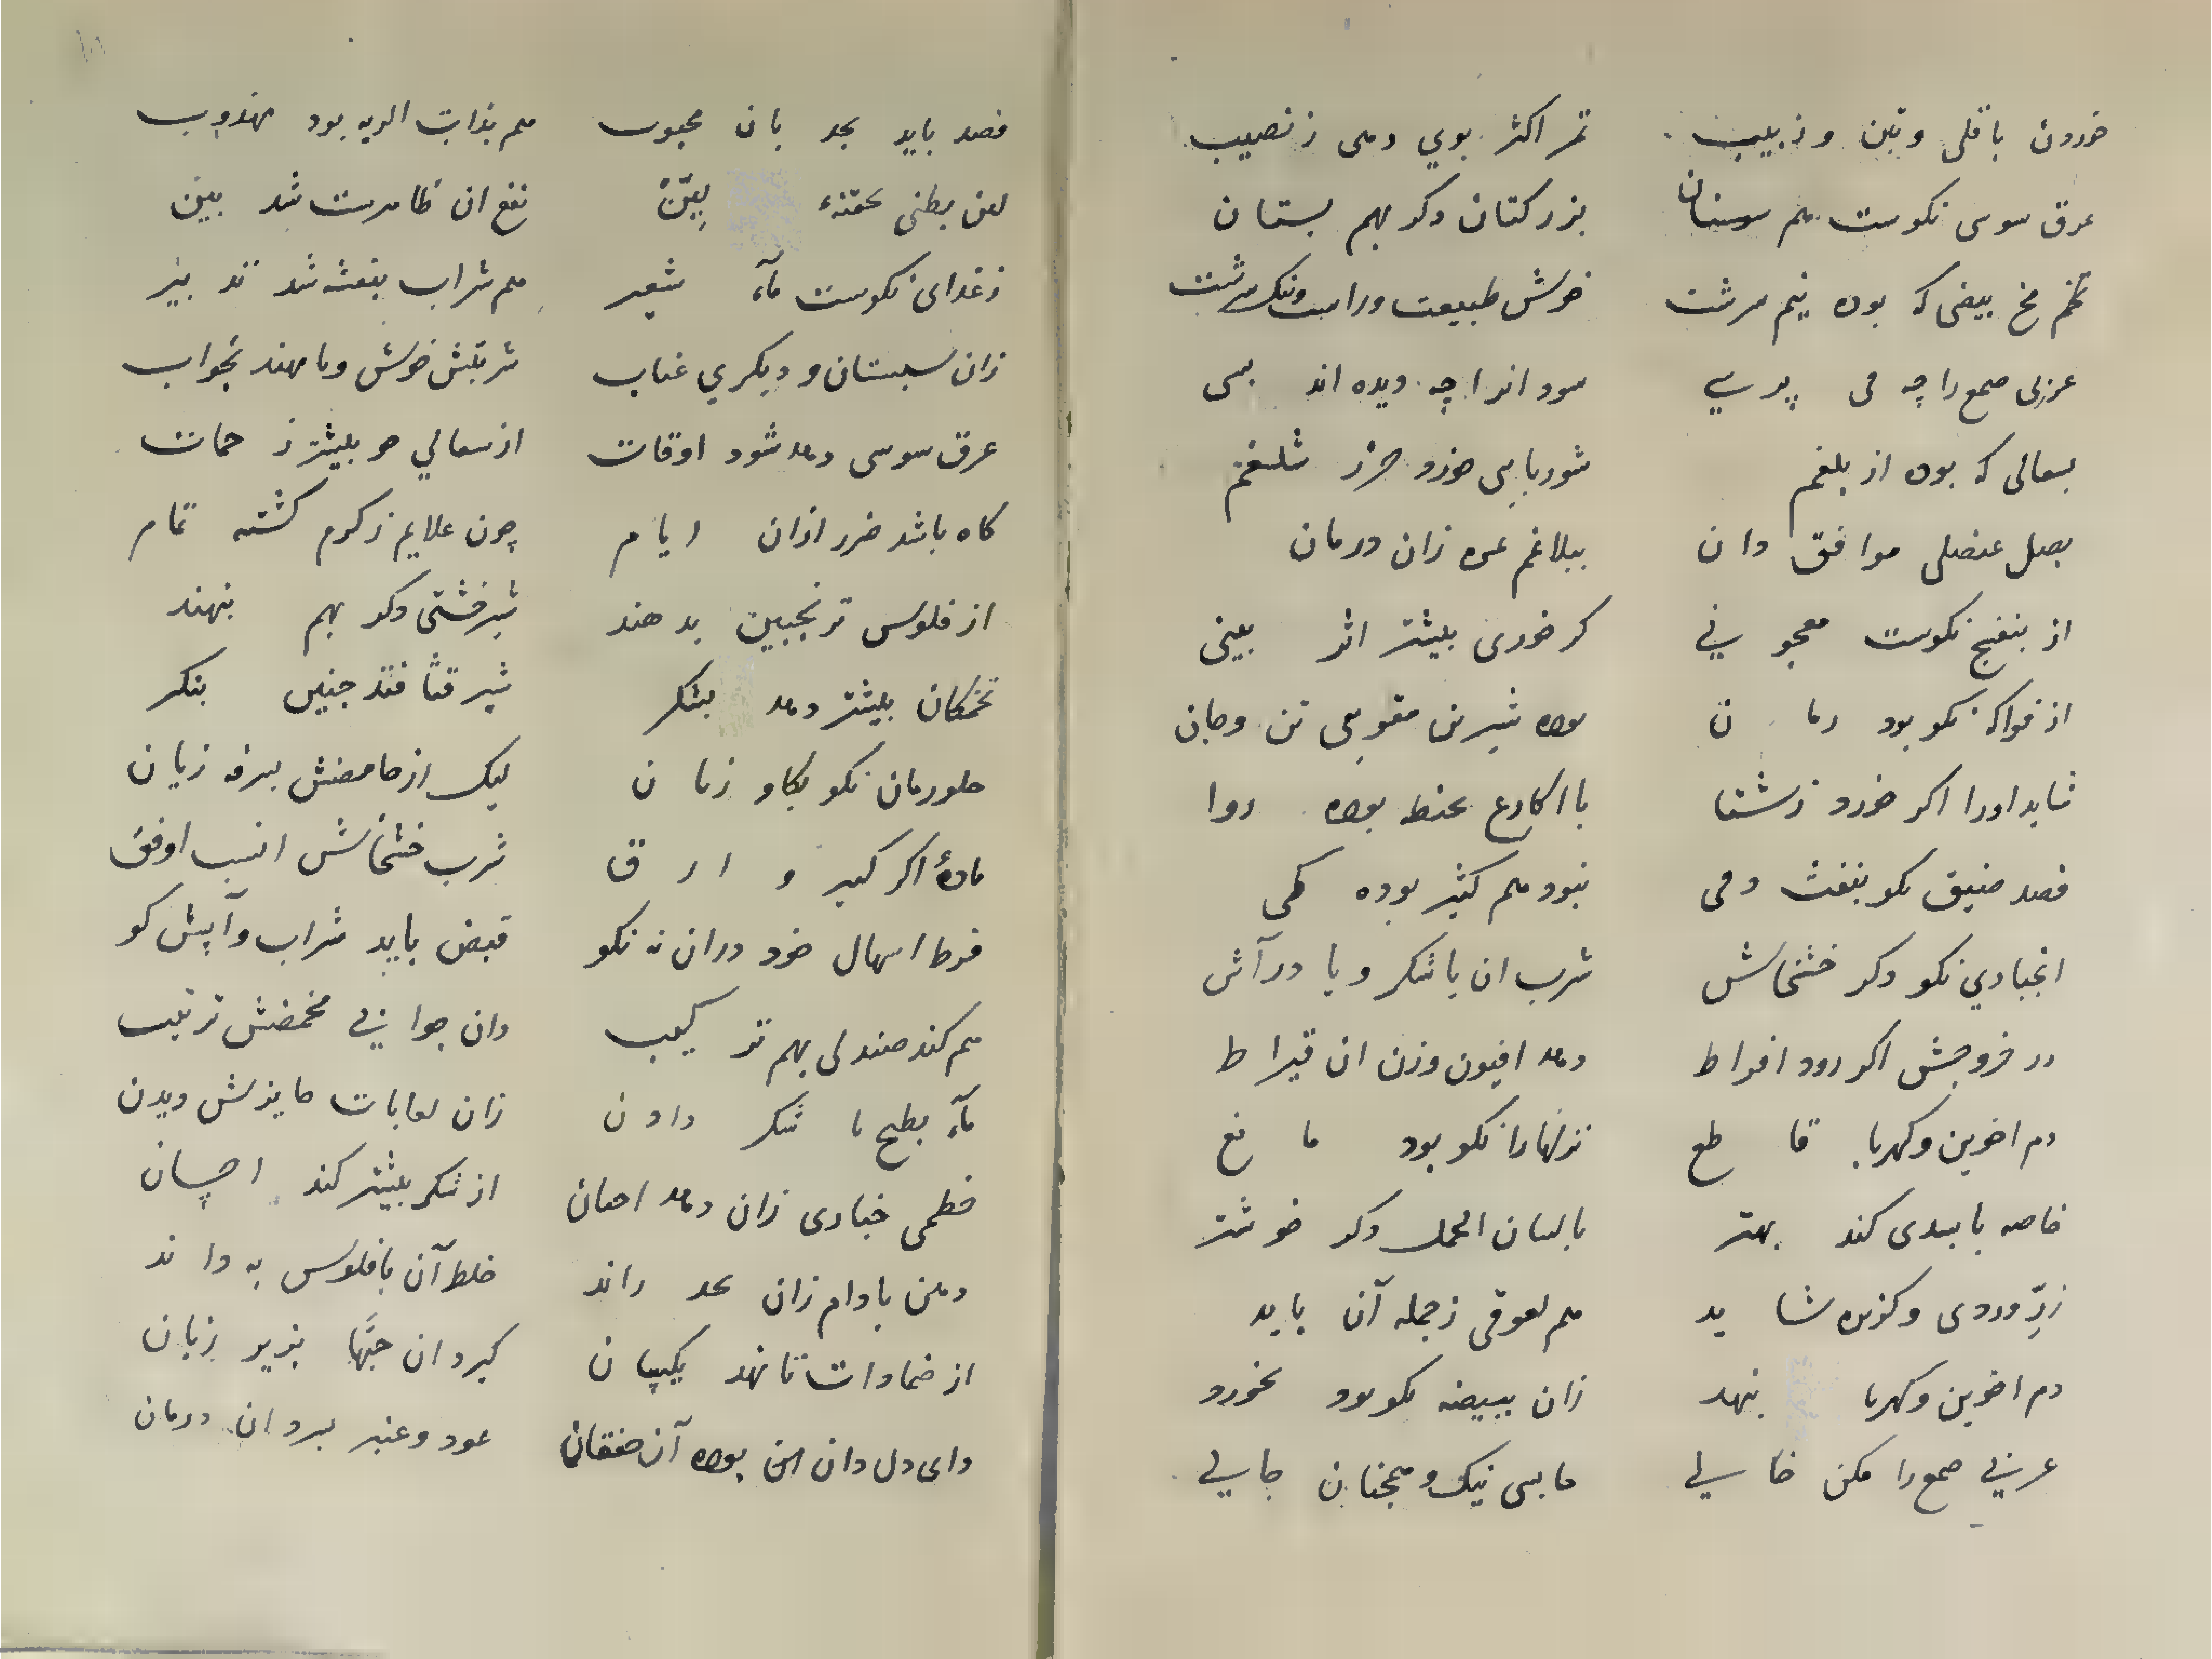 خوردن باقلی وتین و زبیب تمر اکثر بوی دمی ز نصیب
عرق سوسی نکوست هم سوسنان بزر کتان دکر بهم بستان
تخم مخ بیضی که بوده نیم مرشت خوش طبیعت وراست ونیک سرشت
عربی صمع را چه می پرسی سود انرا چه دیده اند بسی
بسعالی که بوده از بلغم شوربا می خورد شلغم
بصل عنصلی موافق دان ببلاغم زان درمان
از بنفج نکوست معجونی کر خوری بیشتر اثر بینی
از فواکه نکو بود رمان بوده شیرین مقویی تن وجان
شاید اورا اکر خورد ز شتا با اکارع بحنطه بوده روا
فصد ضیق نکو بنفث دمی نبود هم کثیر بوده کمی
انجبادی نکو دکر خشخاش شرب ان با شکر و یا در آش
در خروجش اکر رود افراط دهد افیون وزن ان قیراط
دم اخوین وکهربا قاطع نزلها را نکو بود مانع
خاصه با بسدی کند بهتر بالسان الحمل دکر خوشتر
زرّ وردی و کزبره شاید هم لعوقی ز جمله آن باید
دم اخوین وکهربا بنهد زان ببیضه نکو بود بخورد
عربی صمع را مکن خالی ما بسی نیک و همچنان جالی
فصد باید بحد بان محبوب هم بذات الریه بود مندوب
لین بطنی بحقنه بیّن نفع ان ظاهرست شد بین
ز غذای نکوست مآء شعیر هم شراب بنفشه شد تدبیر
زان سبستان و دیکری عناب شربتش خوش وبا مهند بجواب
عرق سوسی دهد شود اوقات از سعالی هو بیشتر ز حمات
کاه باشد ضرر ازان ایام چون علایم ز کرم کشته تمام
از فلوس ترنجبین بدهند شیرخشتی دکر بهم بنهند
تخمکان بیشتر دهد بشکر شیر قثا فتد چنین بنکر
حلو رمان نکو بکاو زبان لیک از حامضش بسرفه زیان
مادهٔ اکر کبیر و ارق شرب خشخاش انسب اوفق
فرط اسهال خود دران نه نکو قبض باید شراب وآبش کو
هم کند صندلی بهم ترکیب دان جوازی محمضش ترتیب
مآء بطیح با شکر دادن زان لعابات مایزش دیدن
خطمی خبازی زان دهد احسان از شکر بیشتر کند احسان
دهن بادام زان بحد راند خلط آن بافلوس به داند
از ضمادات تا نهد یکسان کیرد ان حبّها بزیر زبان
دای دل دان این بوده آن خفقان عود و عنبر برد ان درمان